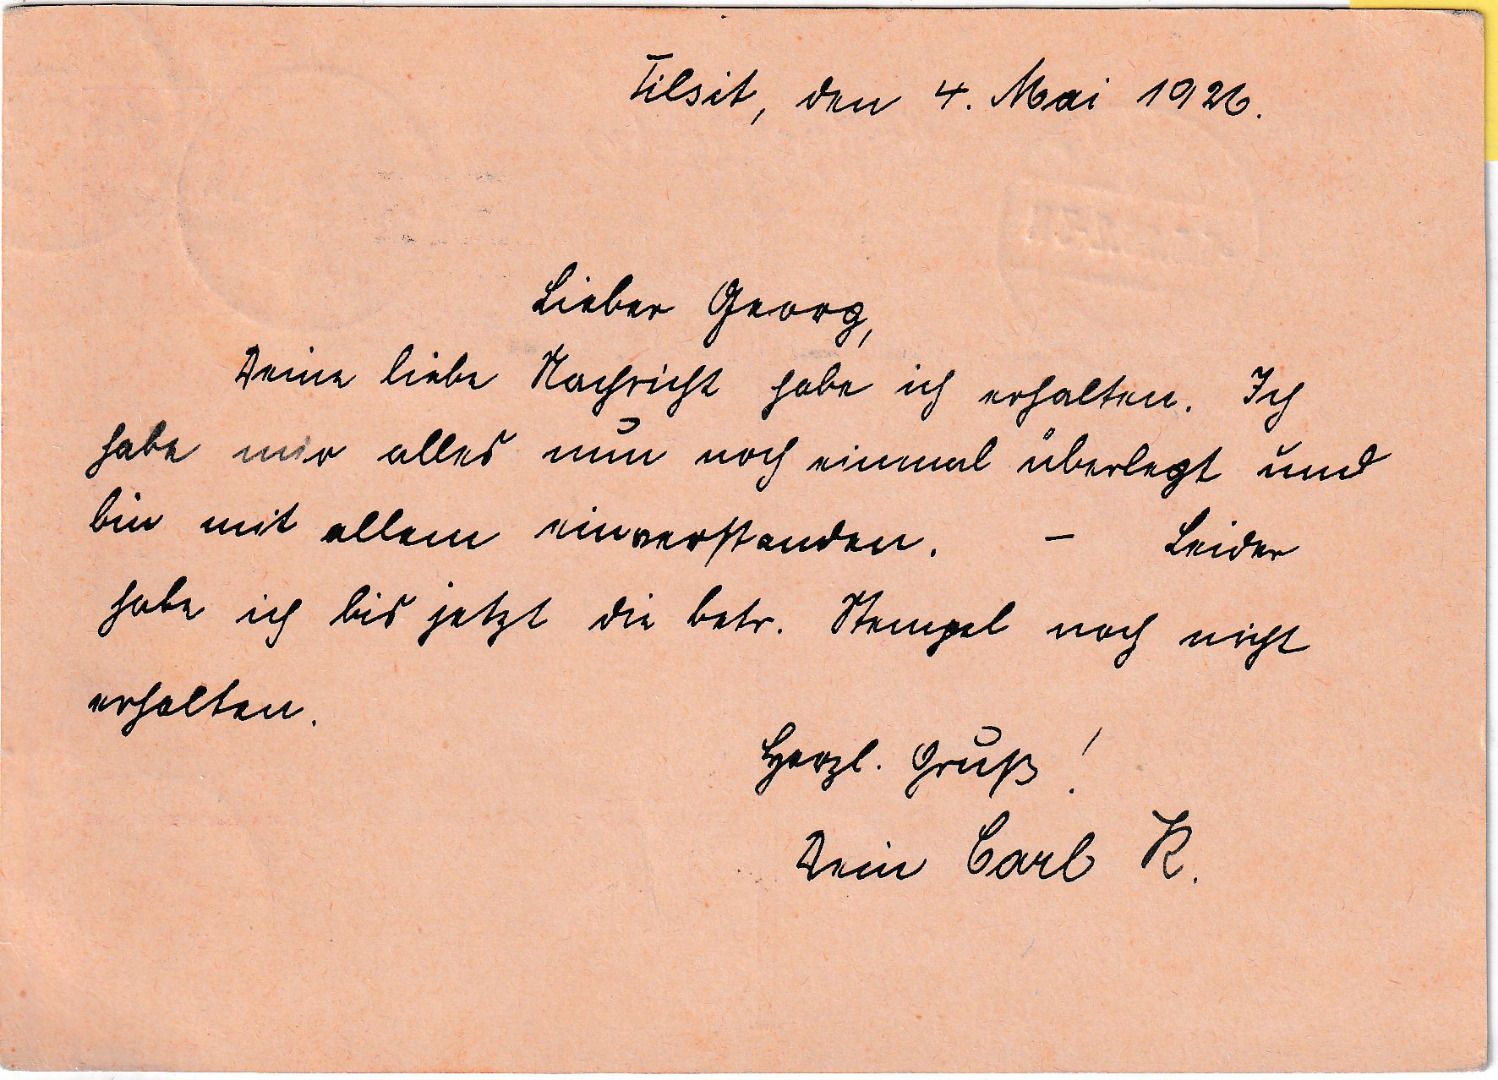 Tilsit, den 4. Mai 1926.
Lieber Georg,
Deine liebe Nachricht habe ich erhalten. Ich
habe mir alles nun noch einmal überlegt und
bin mit allem einverstanden. – Leider
habe ich bis jetzt die betr. Stempel noch nicht
erhalten.
Herzl. Gruß!
Dein Carl K.